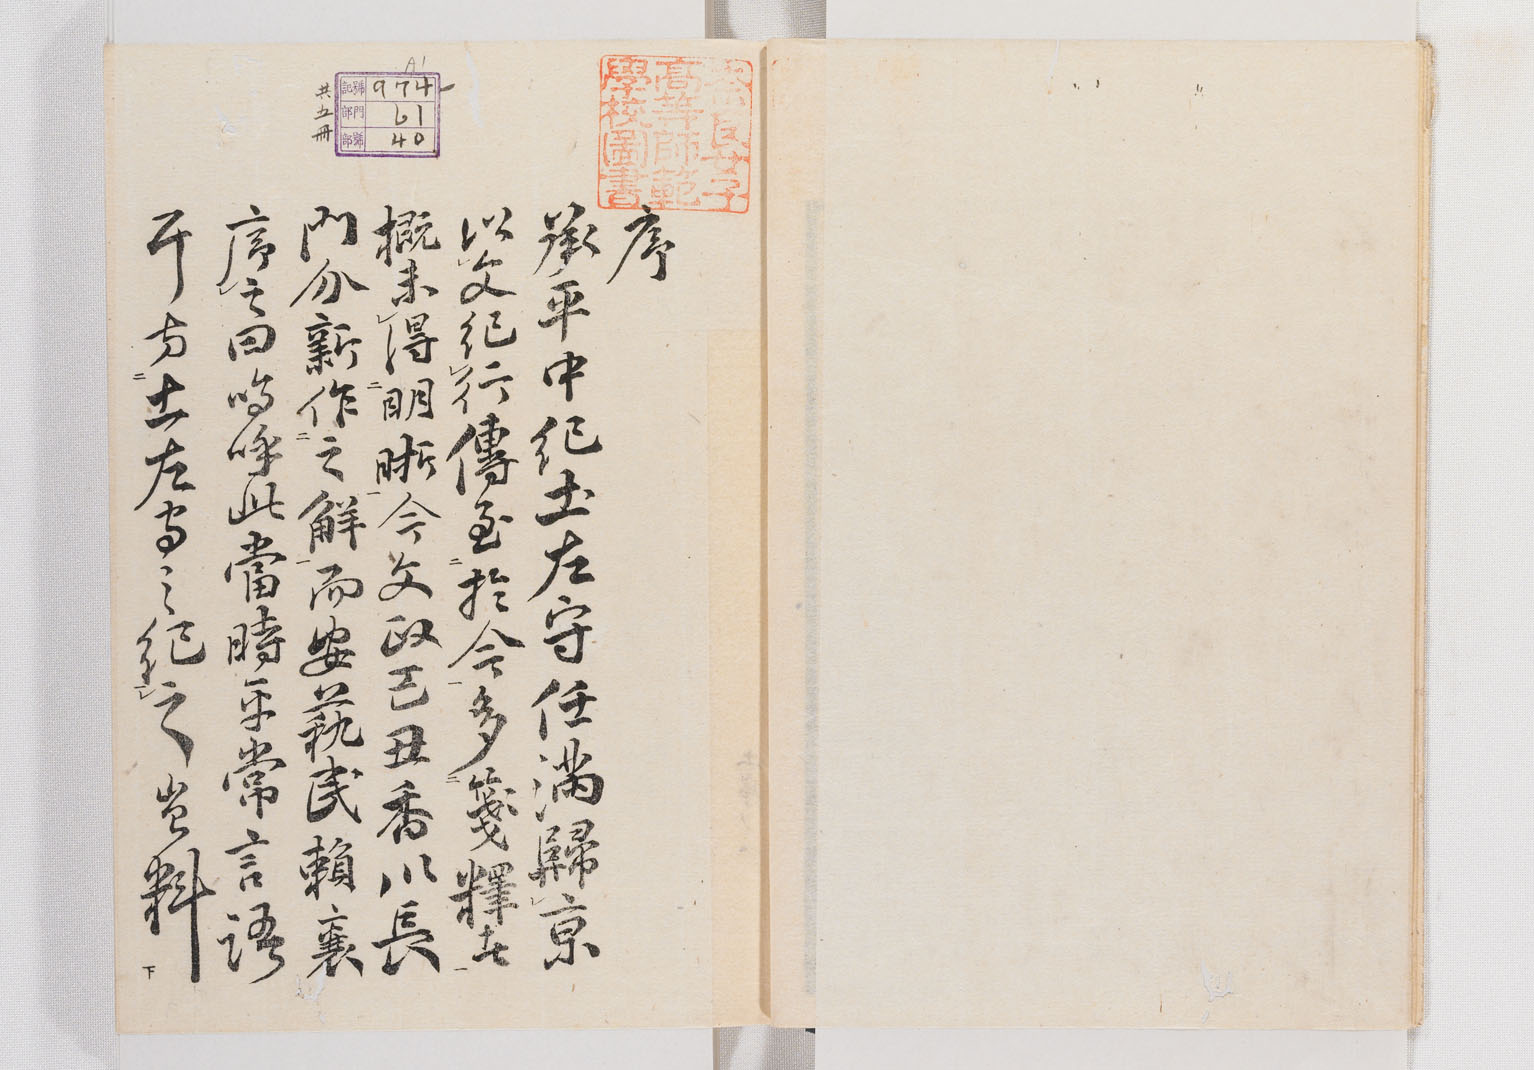 奈良女子
高等師範
學校圖書
974
61
40
共五冊
序
承平中紀土左守任滿歸京
以文紀行傳至於今多箋釋者
概未得明晰今文政己丑香川長
門介新作之解而安藝民賴襄
序之曰嗚呼此當時平常言語
耳方土左守之紀之豈料